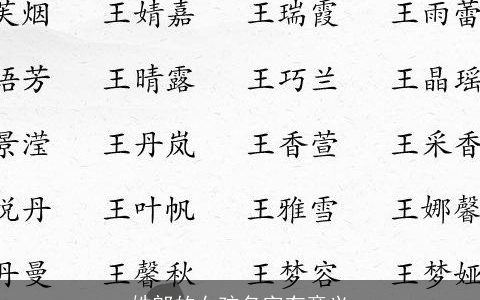 芙烟 王婧嘉 王瑞霞 王雨蕾
语芳 王晴露 王巧兰 王晶瑶
景滢 王丹岚 王香萱 王采香
悦丹 王叶帆 王雅雪 王娜馨
丹曼 王馨秋 王梦容 王梦娅
姓郎的女孩名字有意义